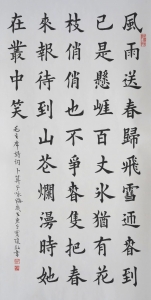 風雨送春歸飛雪迎春到
已是懸崕百丈氷猶有花
枝俏俏也不爭春隻把春
來報待到山花爛漫時她
在叢中笑
毛主席詩詞卜算子咏梅